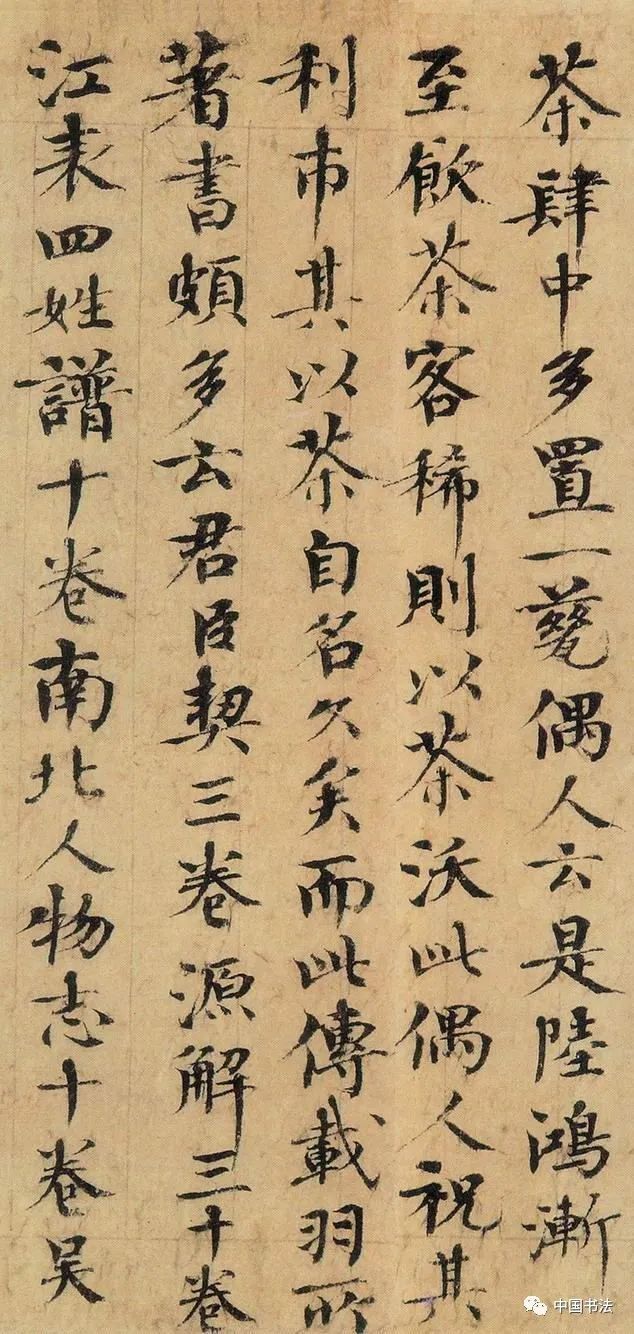 茶肆中多置一甆偶人云是陸鴻漸
至飲茶客稀則以茶沃此偶人祝其
利市其以茶自名久矣而此傳載羽所
著書頗多云君臣契三卷源解三十卷
江表四姓譜十卷南北人物志十卷吴
中国书法